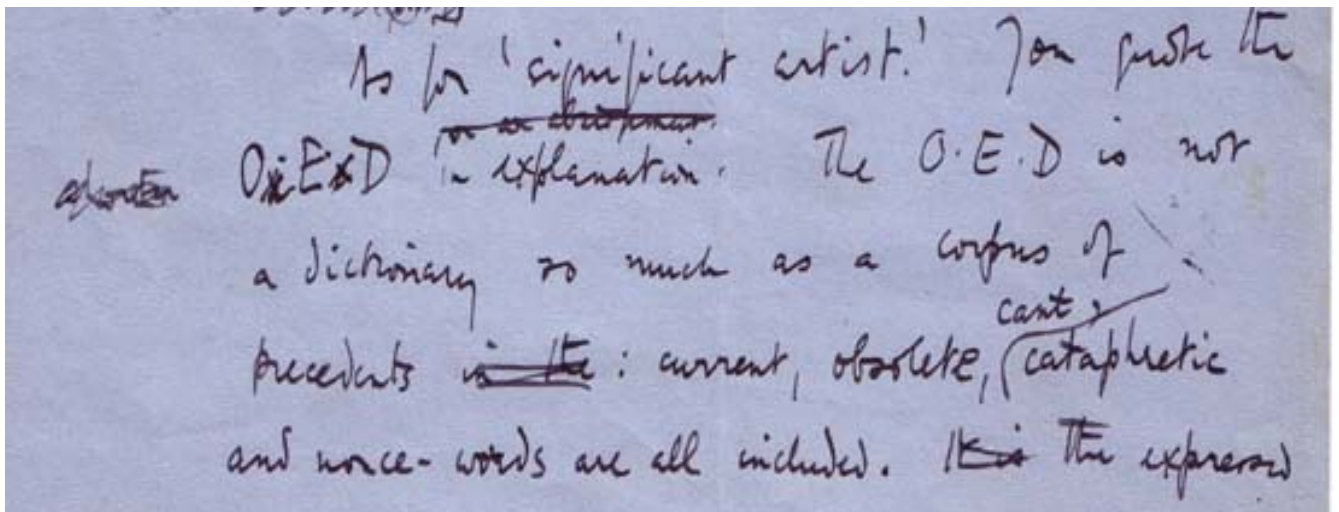 As for 'significant artist.' You quote the
O.E.D in explanation. The O.E.D is not
a dictionary so much as a corpus of
cant,
precedents is the : current, obsolete, cataphretic
and nonce-words are all included. It is The expressed